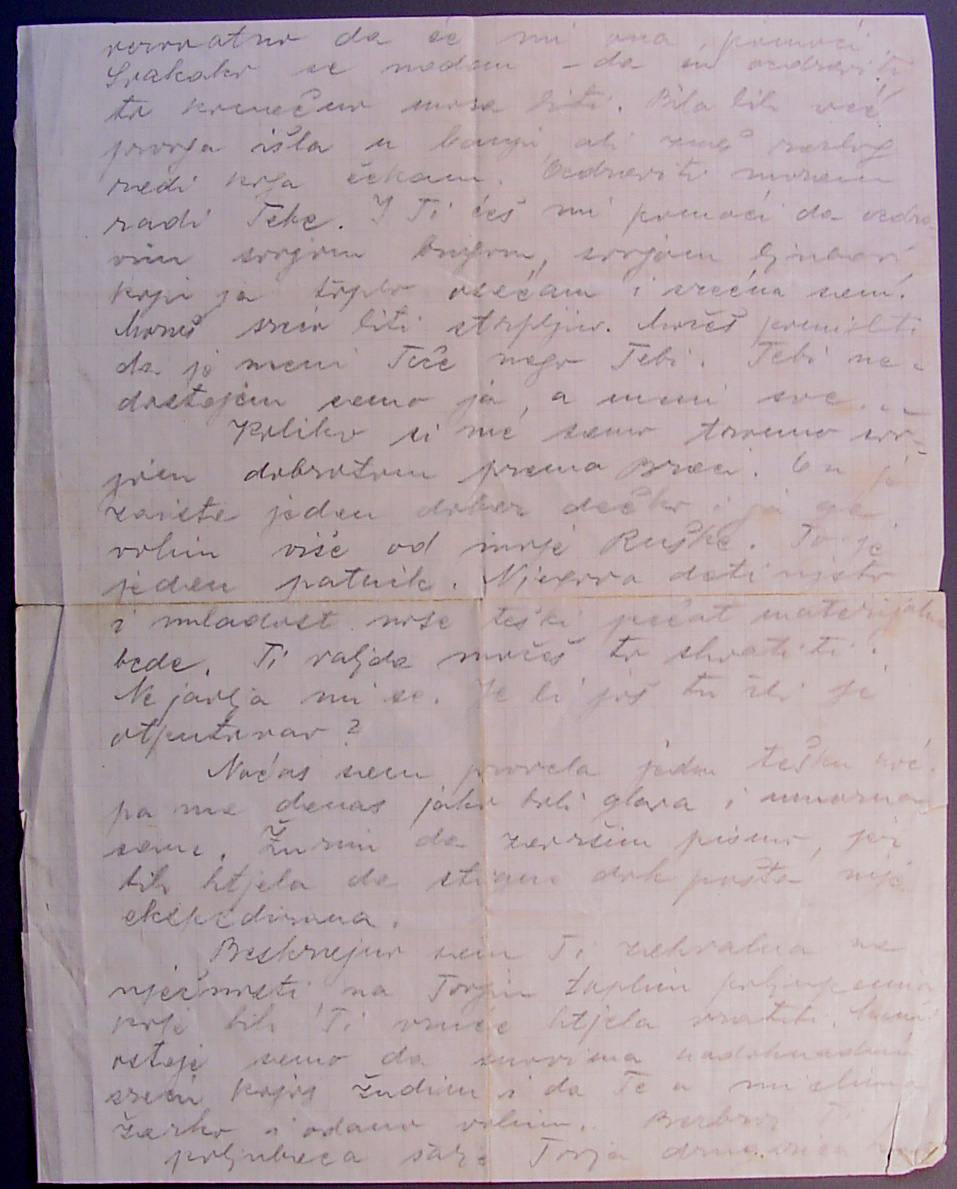 verovatno da će mi ona pomoći.
Svakako se nadam – da ću ozdraviti
to konačno mora biti. Bila bih već
prvoga išla u banju, ali znaš razlog
radi koga čekam. Ozdraviti moram
radi Tebe. I Ti ćeš mi pomoći da ozdra
vim svojom brigom, svojom ljubavi
koju ja toplo osećam i srećna sam.
Moraš samo biti strpljiv. Možeš pomisliti
da je meni teže nego Tebi. Tebi ne-
dostajem samo ja, a meni sve...
Koliko si me samo tronuo svo-
jom dobrotom prema Braci. On je
zaista jedan dobar dečko i ja ga
volim više od moje Ruške. To je
jedan patnik. Njegova detinjstvo
i mladost nose teški pečat materijalne
bede. Ti valjda možeš to shvatiti.
Ne javlja mi se. Je li još tu ili je
otputovao?
Noćas sam provela jednu tešku noć.
pa me danas jako boli glava i umorna
sam. Žurim da završim pismo, jer
bih htjela da stigne dok pošta nije
ekspedirana.
Beskrajno sam Ti zahvalna na
nježnosti, na Tvojim toplim poljupcima
koje bih Ti vruće htjela vratiti.
ostaje samo da snovima nadoknađam
sreću kojoj žudim i da Te u mislima
žarko i odano volim. Bezbroj
poljubaca šalje Tvoja drugarica